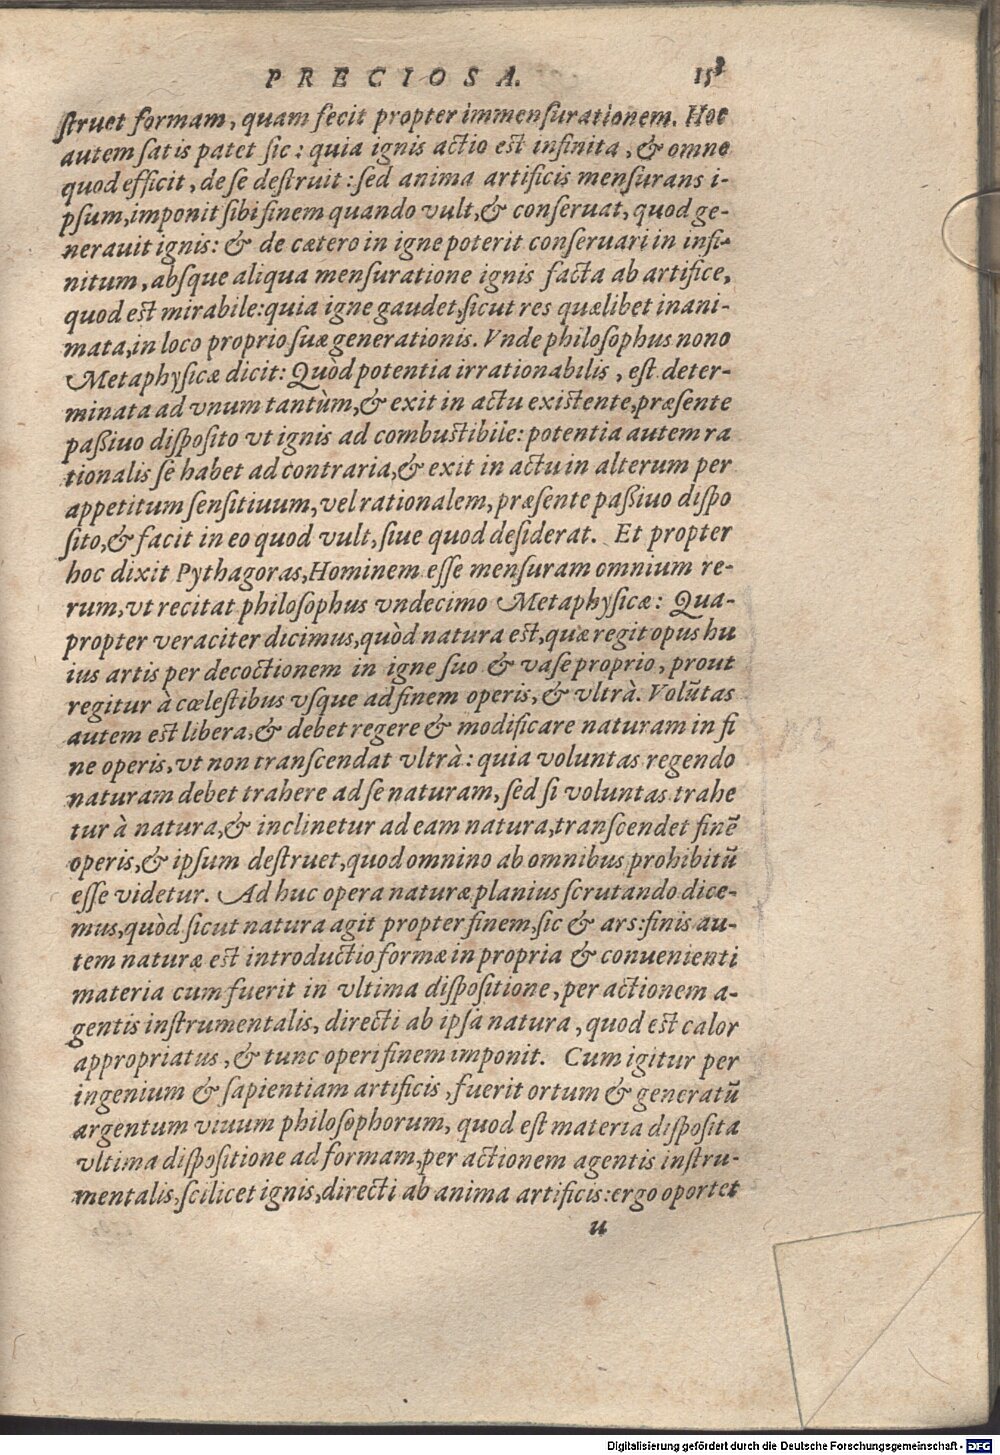 PRECIOSA. 153
ſtruet formam, quam fecit propter immenſurationem. Hoc
autem ſatis patet ſic: quia ignis actio eſt infinita, & omne
quod efficit, de ſe deſtruit: ſed anima artificis menſurans i-
pſum, imponit ſibi finem quando vult, & conſeruat, quod ge-
nerauit ignis: & de cætero in igne poterit conſeruari in infi-
nitum, abſque aliqua menſuratione ignis facta ab artifice,
quod eſt mirabile: quia igne gaudet, ſicut res quælibet inani-
mata, in loco proprio ſuæ generationis. Vnde philoſophus nono
Metaphyſicæ dicit: Quòd potentia irrationabilis, eſt deter-
minata ad vnum tantùm, & exit in actu exiſtente, præſente
paßiuo diſpoſito vt ignis ad combuſtibile: potentia autem ra
tionalis ſe habet ad contraria, & exit in actu in alterum per
appetitum ſenſitiuum, vel rationalem, præſente paßiuo diſpo
ſito, & facit in eo quod vult, ſiue quod deſiderat. Et propter
hoc dixit Pythagoras, Hominem eſſe menſuram omnium re-
rum, vt recitat philoſophus vndecimo Metaphyſicæ: Qua-
propter veraciter dicimus, quòd natura eſt, quæ regit opus hu
ius artis per decoctionem in igne ſuo & vaſe proprio, prout
regitur à cœleſtibus vſque ad finem operis, & vltrà. Volūtas
autem eſt libera, & debet regere & modificare naturam in fi
ne operis, vt non tranſcendat vltrà: quia voluntas regendo
naturam debet trahere ad ſe naturam, ſed ſi voluntas trahe
tur à natura, & inclinetur ad eam natura, tranſcendet finē
operis, & ipſum deſtruet, quod omnino ab omnibus prohibitū
eſſe videtur. Ad huc opera naturæ planius ſcrutando dice-
mus, quòd ſicut natura agit propter finem, ſic & ars: finis au-
tem naturæ eſt introductio formæ in propria & conuenienti
materia cum fuerit in vltima diſpoſitione, per actionem a-
gentis inſtrumentalis, directi ab ipſa natura, quod eſt calor
appropriatus, & tunc operi finem imponit. Cum igitur per
ingenium & ſapientiam artificis, fuerit ortum & generatū
argentum viuum philoſophorum, quod eſt materia diſpoſita
vltima diſpoſitione ad formam, per actionem agentis inſtru-
mentalis, ſcilicet ignis, directi ab anima artificis: ergo oportet
u
Digitalisierung gefördert durch die Deutsche Forschungsgemeinschaft - DFG